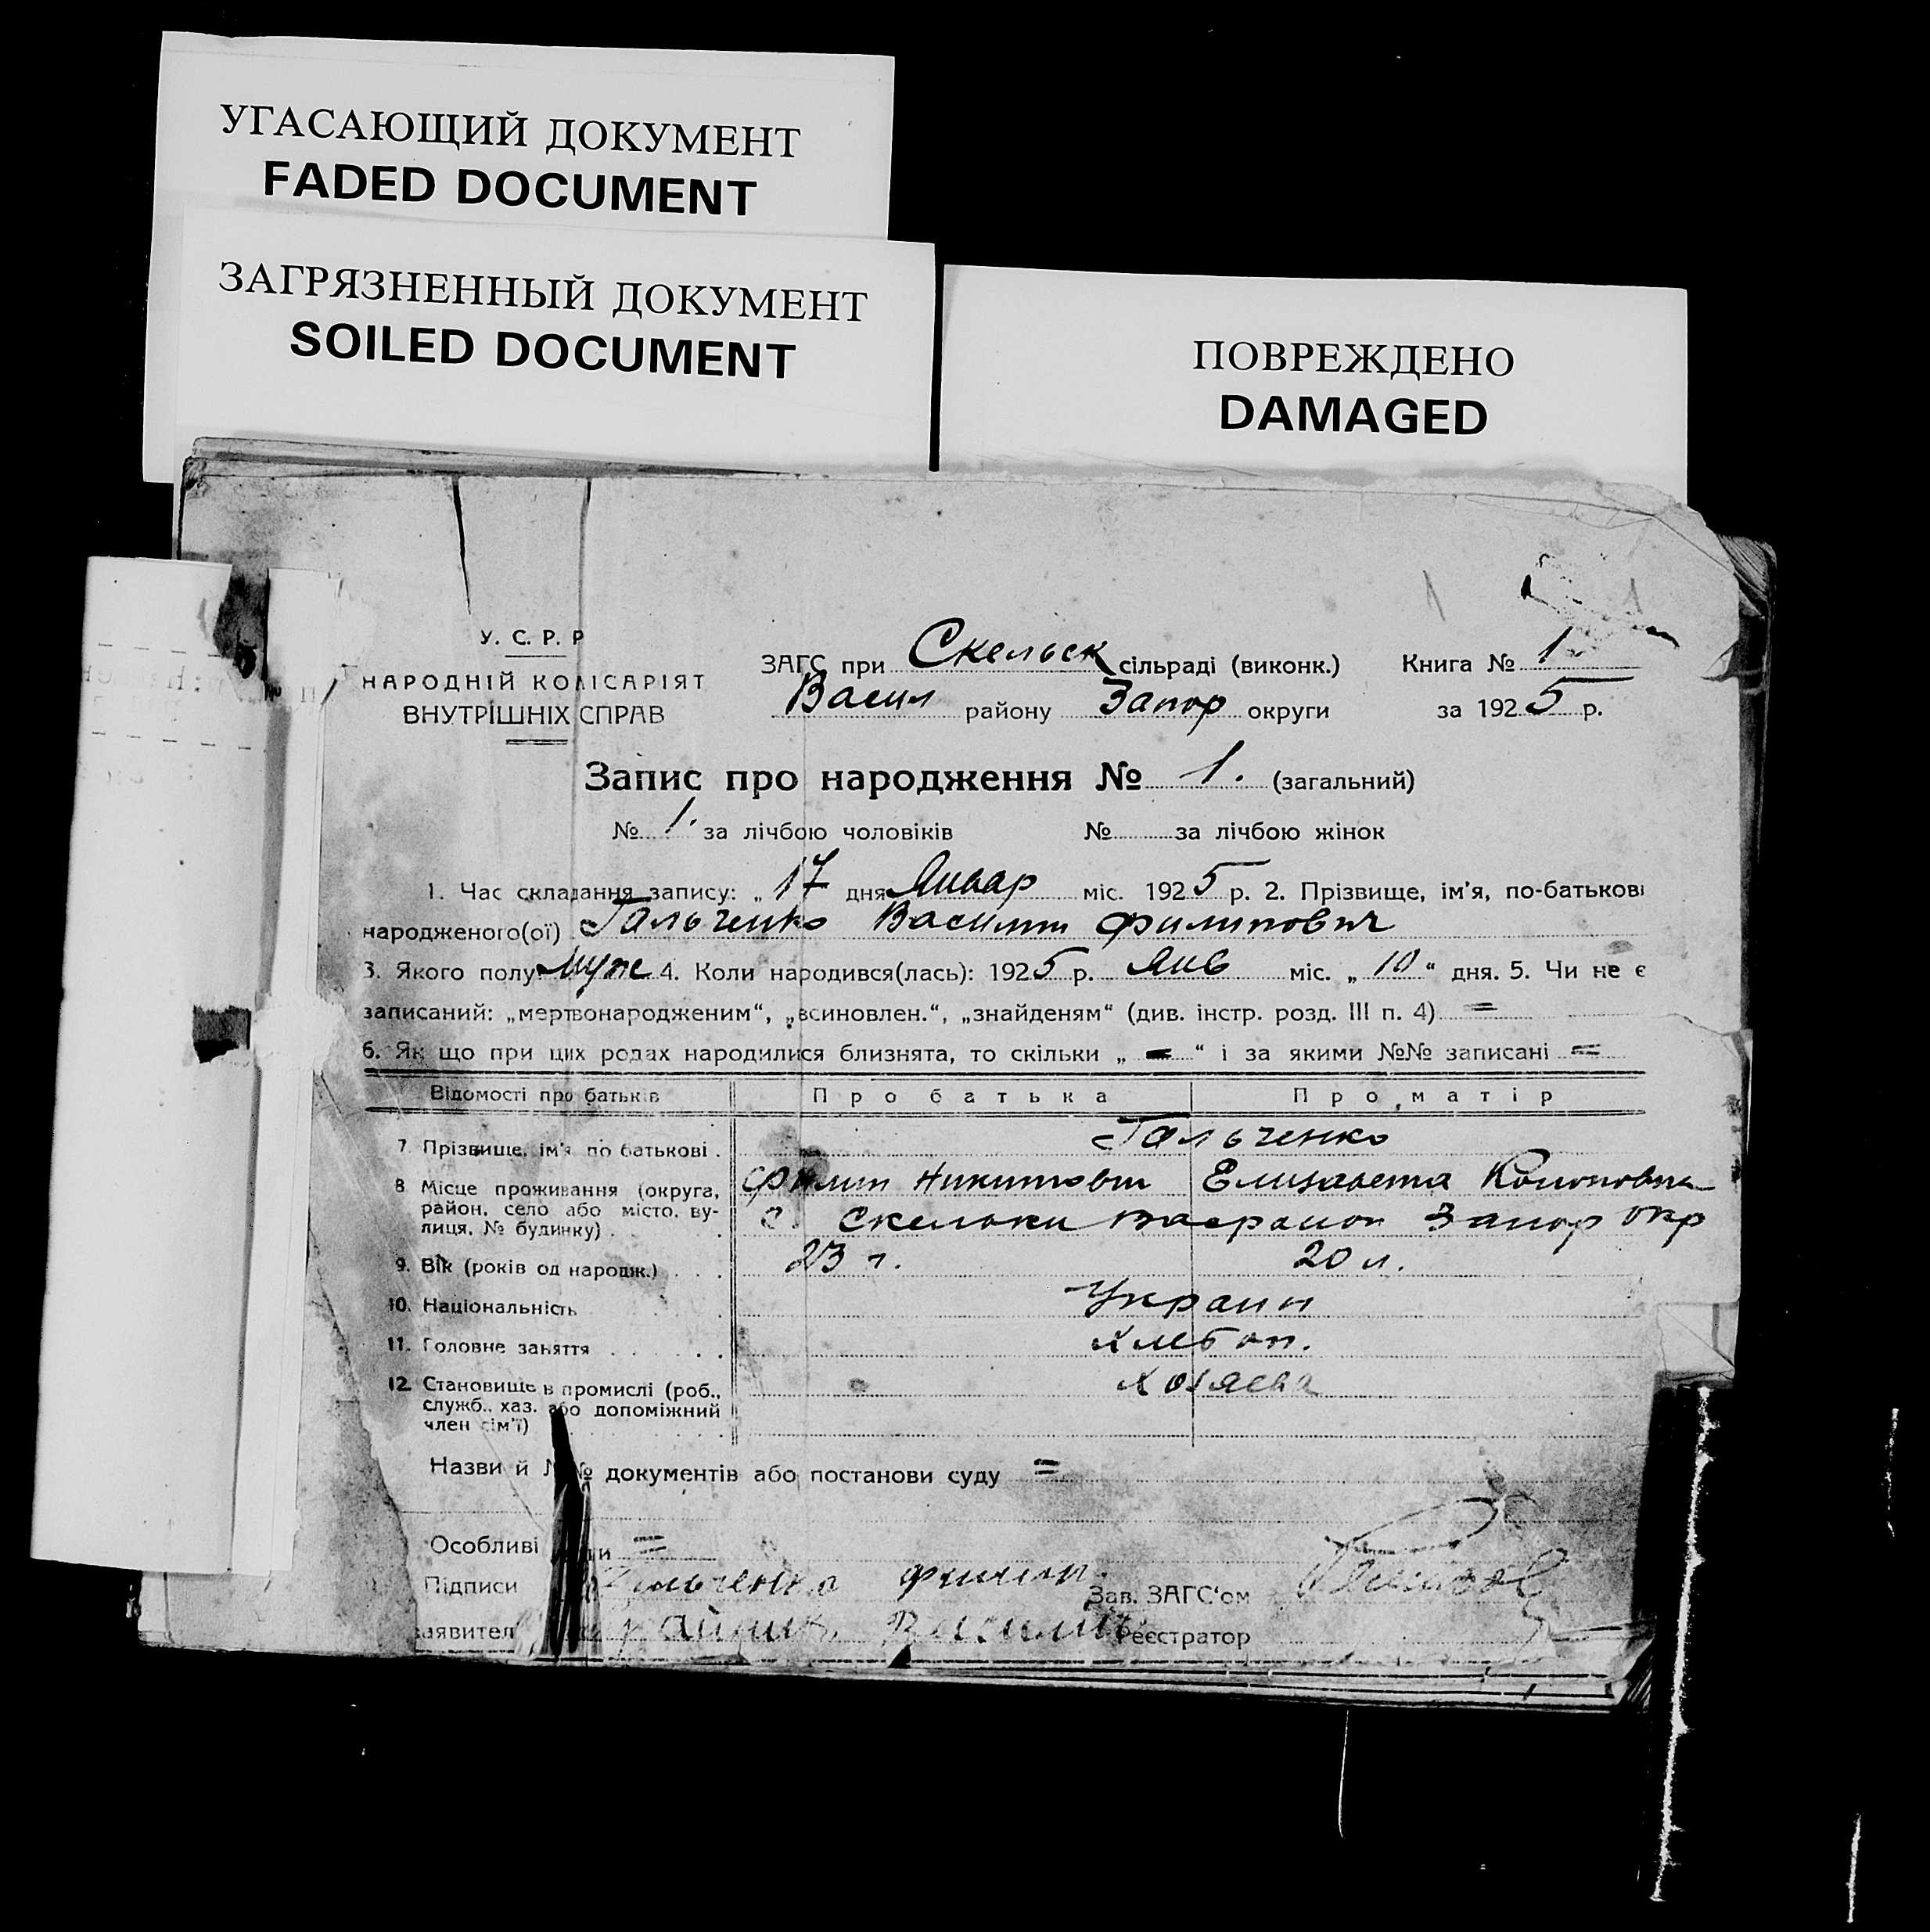 УГАСАЮЩИЙ ДОКУМЕНТ
FADED DOCUMENT
ЗАГРЯЗНЕННЫЙ ДОКУМЕНТ
SOILED DOCUMENT
ПОВРЕЖДЕНО
DAMAGED
У. С. Р. Р
НАРОДНІЙ КОМІСАРІЯТ
ВНУТРІШНІХ СПРАВ
ЗАГС при Скельск сільраді (виконк.) Книга № 1
Васил району Запор округи за 1925 р.
Запис про народження № 1. (загальний)
№ 1. за лічбою чоловіків № за лічбою жінок
1. Час складання запису: „ 17 дня Январ міс. 1925 р. 2. Прізвище, ім'я, по-батькові
народженого(ої) Гальченко Василий Филипович
3. Якого полу Муж 4. Коли народився(лась): 1925 р. Янв міс. „ 10 “ дня. 5. Чи не є
записаний: „мертвонародженим“, „всиновлен.“, „знайденям“ (див. інстр. розд. III п. 4) =
6. Як що при цих родах народилися близнята, то скільки „ = “ і за якими №№ записані =
Відомості про батьків Про батька Про матір
7 Прізвище, ім'я по батькові . Гальченко
Филип Никитович Елизавета
8 Місце проживання (округа,
район, село або місто, ву-
лиця, № будинку) . с. Скельки Вас район Запор окр
9. Вік (років од народж.) . . . 23 г. 20 л.
10. Національність Украин
11. Головне заняття . . . . . . Хлебоп.
12 Становище в промислі (роб.,
служб., хаз. або допоміжний
член сім'ї) Хозяева
Назви й №№ документів або постанови суду =
Особливі =
Підписи Гальченко Филип. Зав. ЗАГС'ом
Василь Реєстратор